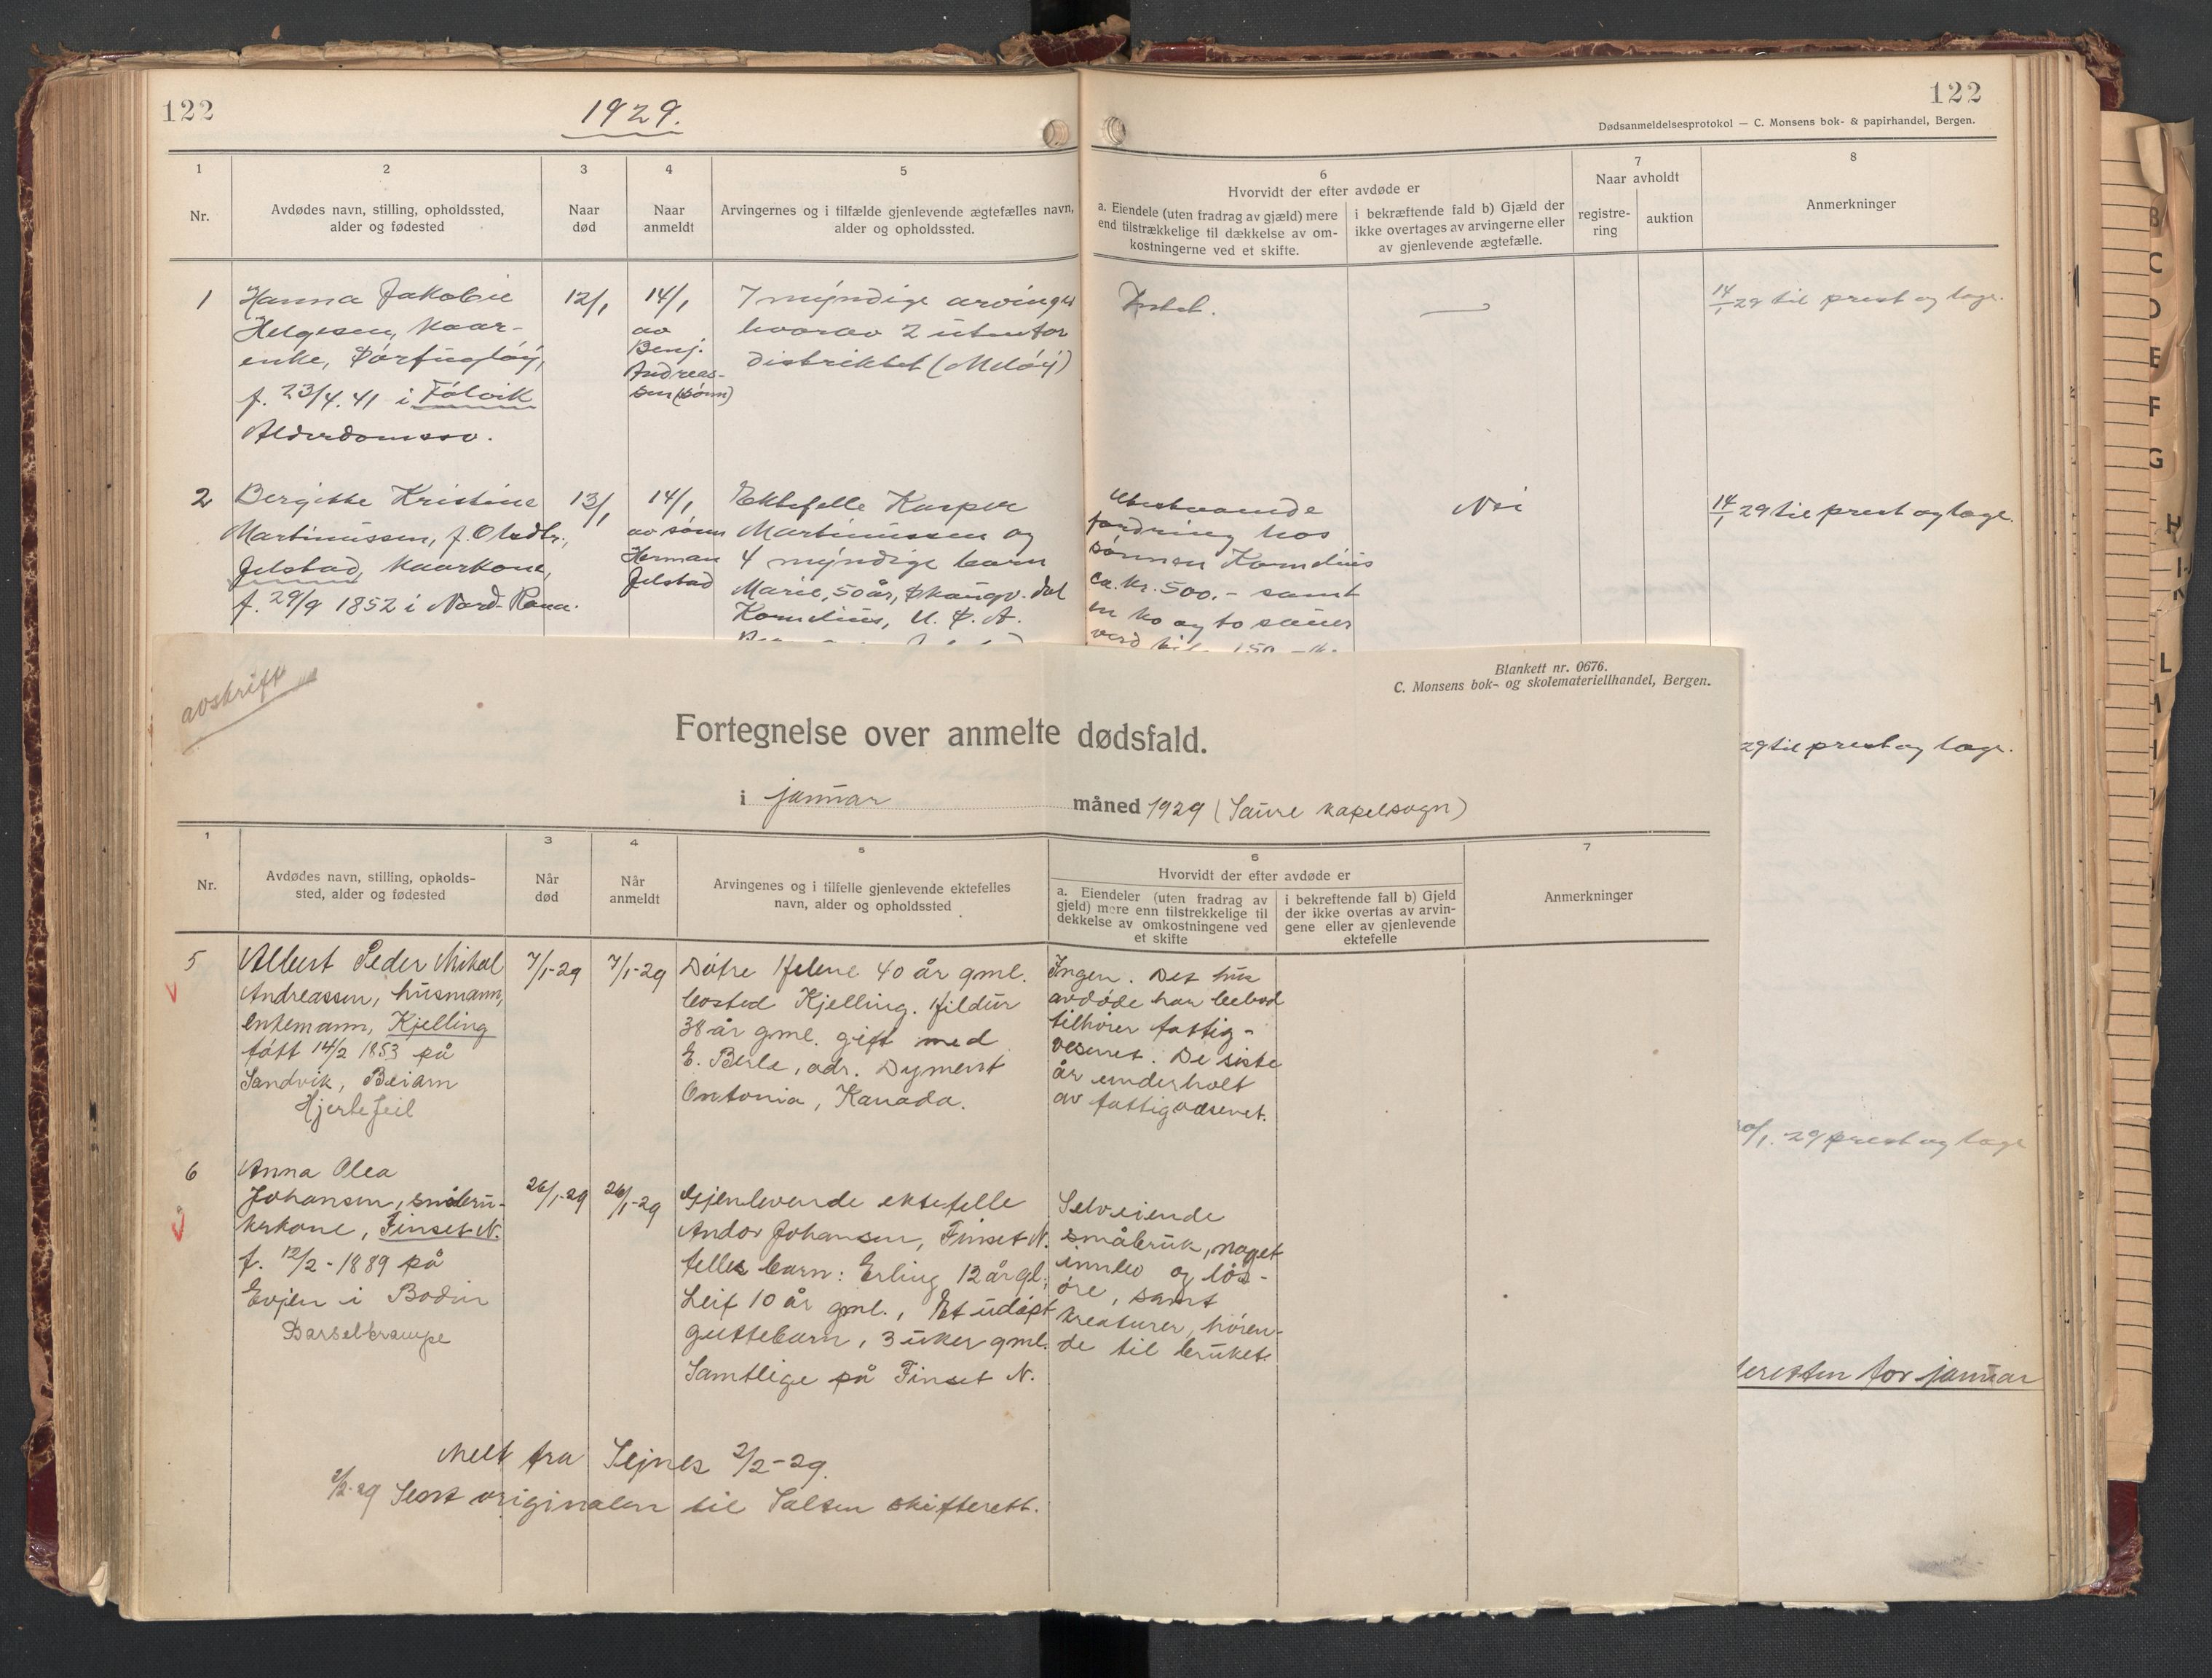 122
1929.
122
Dødsanmeldelsesprotokol — C. Monsens bok- & papirhandel, Bergen.
1
2
3
4
5
6
7
8
Nr.
Avdødes navn, stilling, opholdssted,
alder og fødested
Naar
død
Naar
anmeldt
Arvingernes og i tilfælde gjenlevende ægtefælles navn,
alder og opholdssted.
Hvorvidt der efter avdøde er
a. Eiendele (uten fradrag av gjæld) mere
end tilstrækkelige til dækkelse av om-
kostningerne ved et skifte.
i bekræftende fald b) Gjæld der
ikke overtages av arvingerne eller
av gjenlevende ægtefælle.
Naar avholdt
registre-
ring
auktion
Anmerkninger
1
Hanna Jakobie
Helgesen, kaar-
enke, Sørfugløy,
f. 23/4. 41 i Følvik
Alderdomssv.
12/1
14/1
av
Benj.
Andreas-
sen (sønn)
7 myndige arvinger
hvorav 2 utenfor
distriktet (Meløy)
Intet.
14/1 29 til prest og læge.
2
Bergitte Kristine
Martinussen, f. Olsdtr.,
Jelstad, kaarkone,
f. 29/9 1852 i Nord-Rana.
13/1
14/1
av sønn
Herman
Jelstad
Ektefelle Kasper
Martinussen og
4 myndige barn
Marie, 50 år, Skaugv. dal
Kornelius, U. S. A.
Utestaaende
fordring hos
sønnen Kornelius
ca. kr. 500.- samt
en ko og to sauer
verd
150
Nei
14/1 29 til prest og læge.
29 til prest og læge.
/1.-29 prest og læge
retten for januar
avskrift
Blankett nr. 0676.
C. Monsens bok- og skolemateriellhandel, Bergen.
Fortegnelse over anmelte dødsfald.
i januar måned 1929 (Saure kapelsogn)
1
3
4
5
6
7
Nr.
Avdødes navn, stilling, opholds-
sted, alder og fødested
Når
død
Når
anmeldt
Arvingenes og i tilfelle gjenlevende ektefelles
navn, alder og opholdssted
Hvorvidt der efter avdøde er
a. Eiendeler (uten fradrag av
gjeld) mere enn tilstrekkelige til
dekkelse av omkostningene ved
et skifte
i bekreftende fall b) Gjeld
der ikke overtas av arvin-
gene eller av gjenlevende
ektefelle
Anmerkninger
5
Albert Peder Mikal
Andreassen, husmann,
enkemann, Kjelling
født 14/2 1853 på
Sandvik, Beiarn
Hjertefeil
7/1-29
7/1-29
Døtre Helene 40 år gml.
bosted Kjelling. Hildur
38 år gml. gift med
E. Berle, adr. Dyment
Ontonia, Kanada.
Ingen. Det hus
avdøde har bebod
tilhører fattig-
vesenet. De siste
år underholt
av fattigvæsenet.
6
Anna Olea
Johansen, småbru-
kerkone, Finset N.
f. 12/2-1889 på
Evjen i Bodin
Barselkrampe
26/1-29
26/1-29
Gjenlevende ektefelle
Andor Johansen, Finset N.
felles barn: Erling 12 år gl;
Leif 10 år gml., Et udøpt
guttebarn, 3 uker gml.
Samtlige på Finset N.
Selveiende
småbruk, noget
innbo og løs-
øre, samt
kreaturer, høren-
de til bruket.
Melt fra Sejnes 2/2-29.
2/2-29 Sent originalen til Salten skifterett.
B
C
D
E
F
G
H
L